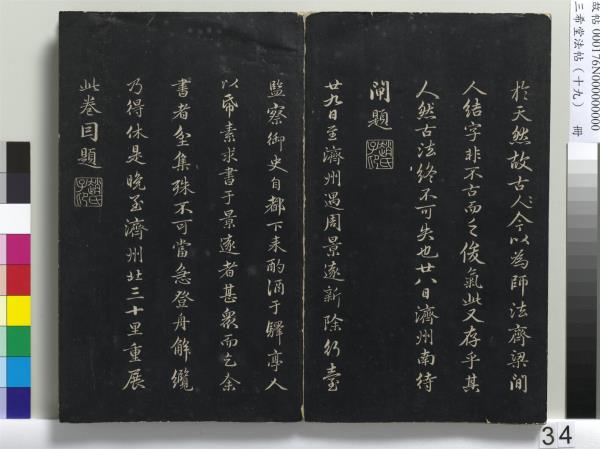 於天然故古人〻今以為師法齊梁間
人結字非不古而乏俊氣此又存乎其
人然古法終不可失也廿八日濟州南待
閘題
趙氏子昂
廿九日至濟州遇周景遠新除行臺
監察御史自都下来酌酒于驛亭人
以帋素求書于景遠者甚衆而乞余
書者坌集殊不可當急登舟解纜
乃得休是晚至濟州北三十里重展
此卷因題
趙氏子昂
故帖 000176N000000000
三希堂法帖(十九) 冊
34